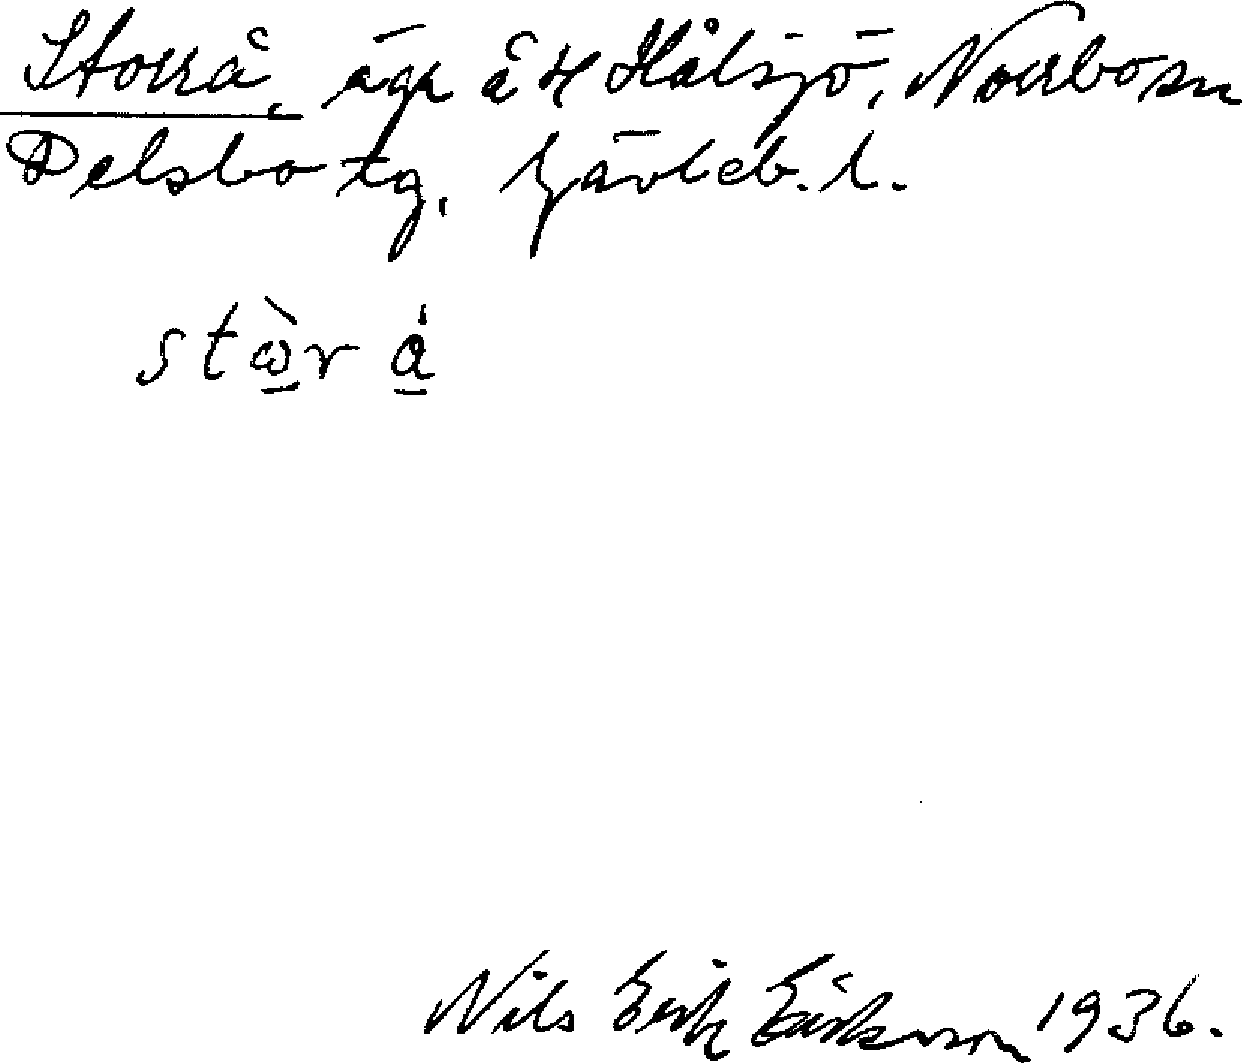 Storrå, äga å 4 Hålsjö, Norrbo sn
Delsbo tg, Gävleb. l.
stὼr å
Nils Erik Eriksson 1936.